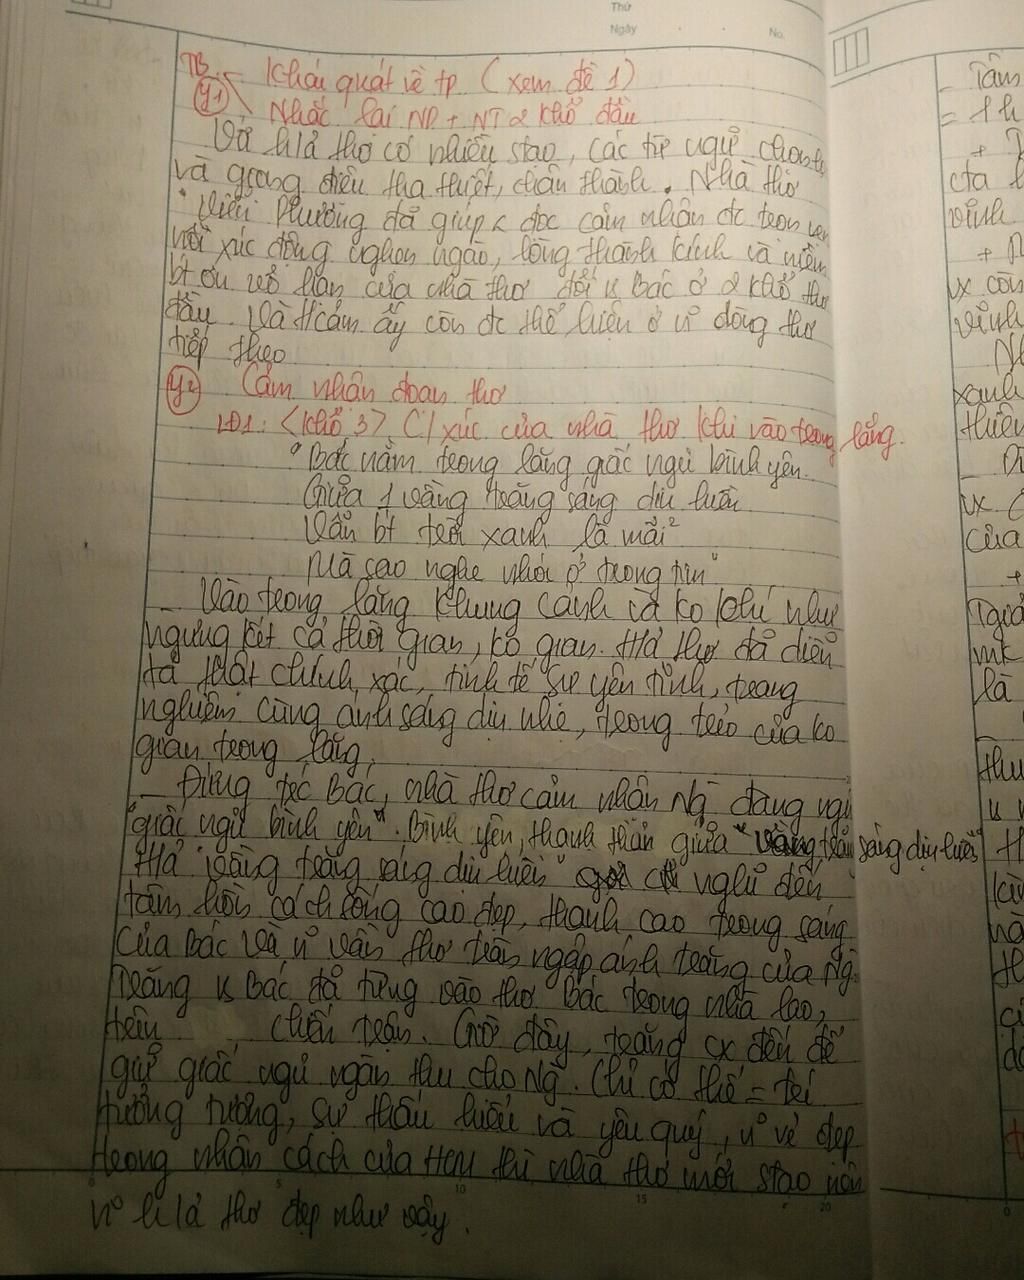 Thứ
Ngày No.
TB Khái quát về tp (xem đề 1)
Y1 Nhắc lại ND + NT 2 khổ đầu
Với h/ả thơ có nhiều stạo, các từ ngữ chọn lọc
và giọng điệu tha thiết, chân thành. Nhà thơ
Viễn Phương đã giúp < đọc cảm nhận đc trọn vẹn
nỗi xúc động nghẹn ngào, lòng thành kính và niềm
bt ơn vô hạn của nhà thơ đối vs Bác ở 2 khổ thơ
đầu. Và t/cảm ấy còn đc thể hiện ở n~ dòng thơ
tiếp theo
Y2 Cảm nhận đoạn thơ
LĐ1: <Khổ 3> C/xúc của nhà thơ khi vào trong lăng.
"Bác nằm trong lăng giấc ngủ bình yên
Giữa 1 vầng trăng sáng dịu hiền
Vẫn bt trời xanh là mãi²
Mà sao nghe nhói ở trong tim"
_ Vào trong lăng khung cảnh và ko khí như
ngưng kết cả thời gian, ko gian. H/ả thơ đã diễn
tả thật chính xác, tinh tế sự yên tĩnh, trang
nghiêm cùng ánh sáng dịu nhẹ, trong trẻo của ko
gian trong lăng.
_ Đứng trc Bác, nhà thơ cảm nhận Ng` đang ngủ
"giấc ngủ bình yên". Bình yên, thanh thản giữa "vầng trăng sáng dịu hiền"
H/ả "vầng trăng sáng dịu hiền" gợi nghĩ đến
tâm hồn cách sống cao đẹp, thanh cao trong sáng
của Bác và n~ vần thơ tràn ngập ánh trăng của Ng`.
Trăng vs Bác đã từng vào thơ Bác trong nhà lao,
trên chiến trận. Giờ đây, trăng cx đến để
giữ giấc ngủ ngàn thu cho Ng`. Chỉ có thể = trí
tưởng tượng, sự thấu hiểu và yêu quý, n~ vẻ đẹp
trong nhân cách của HCM thì nhà thơ mới stạo nên
n~ h/ả thơ đẹp như vậy.
5 10 15 20